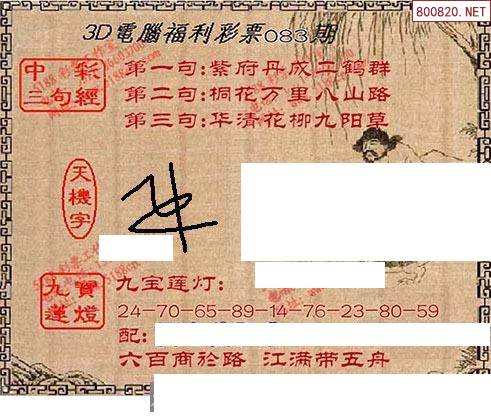 800820.NET
3D電腦福利彩票083期
中彩
三句經
第一句:紫府丹成二鹤群
第二句:桐花万里八山路
第三句:华清花柳九阳草
天機字
九寶
蓮燈
九宝莲灯:
24-70-65-89-14-76-23-80-59
配:
六百商於路 江满带五舟